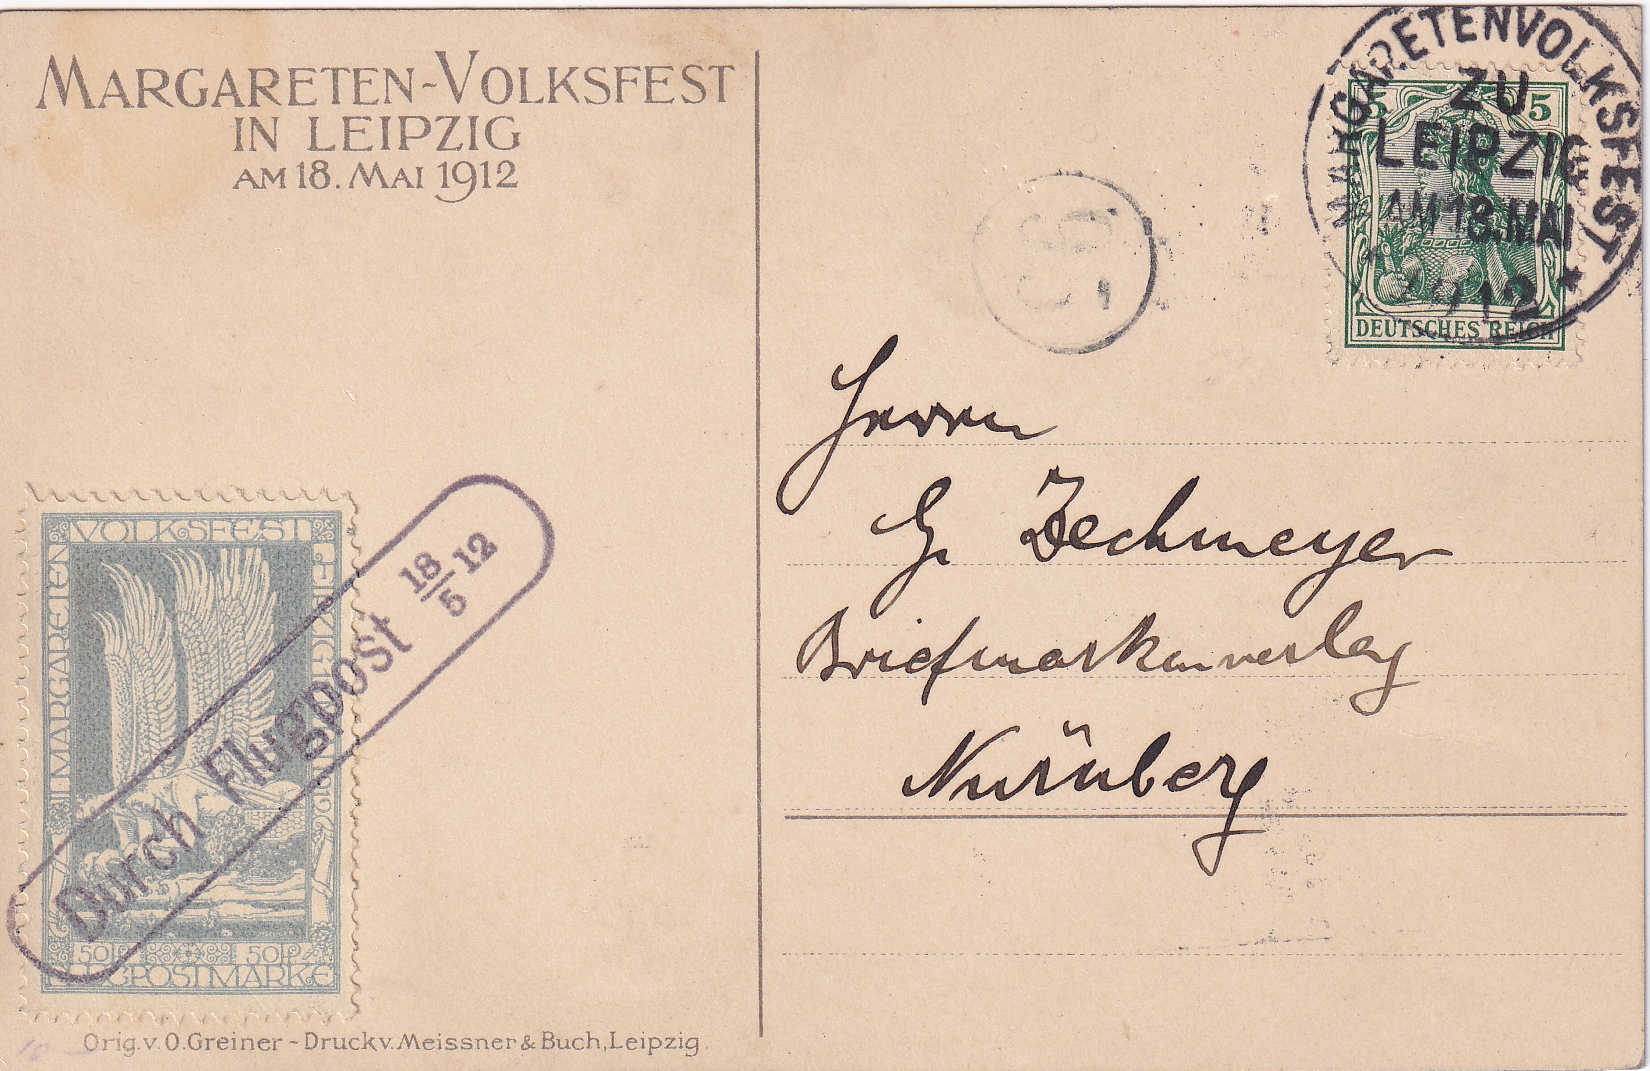 MARGARETEN-VOLKSFEST
IN LEIPZIG
AM 18. MAI 1912
MARGARETENVOLKSFEST
ZU
LEIPZIG
AM 18. MAI
1912
5 5
DEUTSCHES REICH
Herrn
G. Zechmeyer
Briefmarkenverlag
Nürnberg
VOLKSFEST
MARGARETEN
LEIPZIG
50 P 50 P
FLUGPOSTMARKE
Durch Flugpost 18/5 12
Orig. v. O. Greiner - Druck v. Meissner & Buch, Leipzig.